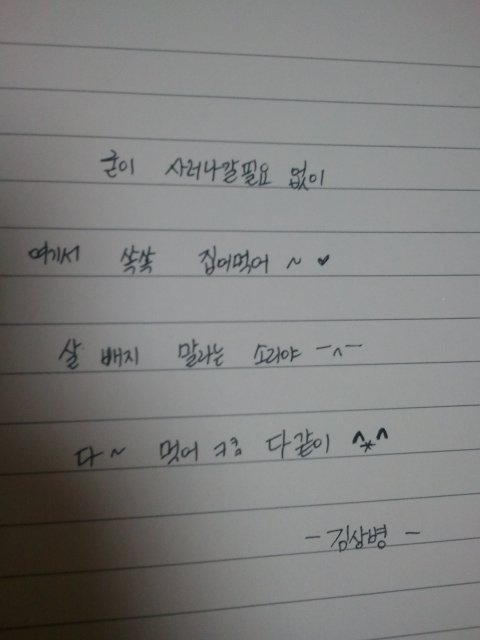 굳이 사러나갈필요 없이
여기서 쏙쏙 집어먹어 ~ ♥
살 배지 말라는 소리야 ㅡㅅㅡ
다 ~ 먹어 ㅋ큼 다같이 ^*^
- 김상병 -